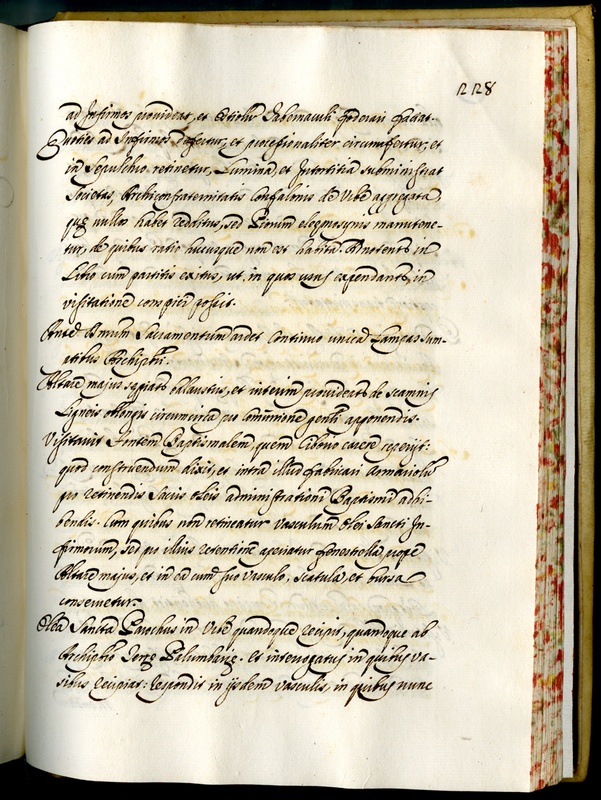 1228
ad Infirmos provideat, et Ostiolũ Tabernaculi foderari faciat.
Quoties ad Infirmos defertur, et processionaliter circumfertur, et
in Sepulchro retinetur, Lumina, et Intortitia subministrat
Societas Archiconfraternitatis Confalonis de Urbe aggregata,
quę nullos habet redditus, sed Piorum eleemosynis manutene-
tur, de quibus ratio hucusque non est habita. Annotentur in
Libro cum partitis exitus, ut, in quos usus expendantur, in
visitatione conspici possit.
Sacramentum ardet continuo unica Lampas sum-
ptibus Archipbri.
Altare majus sępiatur ballaustris, et interim provideatur de scamnis
Ligneis oblongis circumcirca pro com̃unione genti apponendis.
Visitavit Fontem Baptismalem, quem Ciborio carere reperijt:
quod construendum dixit, et intra illud fabricari Armariolũ
pro retinendis Sacris Oleis administrationi Baptismi adhi-
bendis. Cum quibus non retineatur Vasculum Olei Sancti In-
firmorum, sed pro illius retentione aperiatur fenestella prope
Altare majus, et in ea cum suo vasculo, scatula, et bursa
conservetur.
Olea Sancta Parochus in Urbe quandoque recipit, quandoque ab
Archipbro Terrę Palumbarię. Et interrogatus in quibus va-
sibus recipiat: respondit in ijsdem vasculis, in quibus nunc